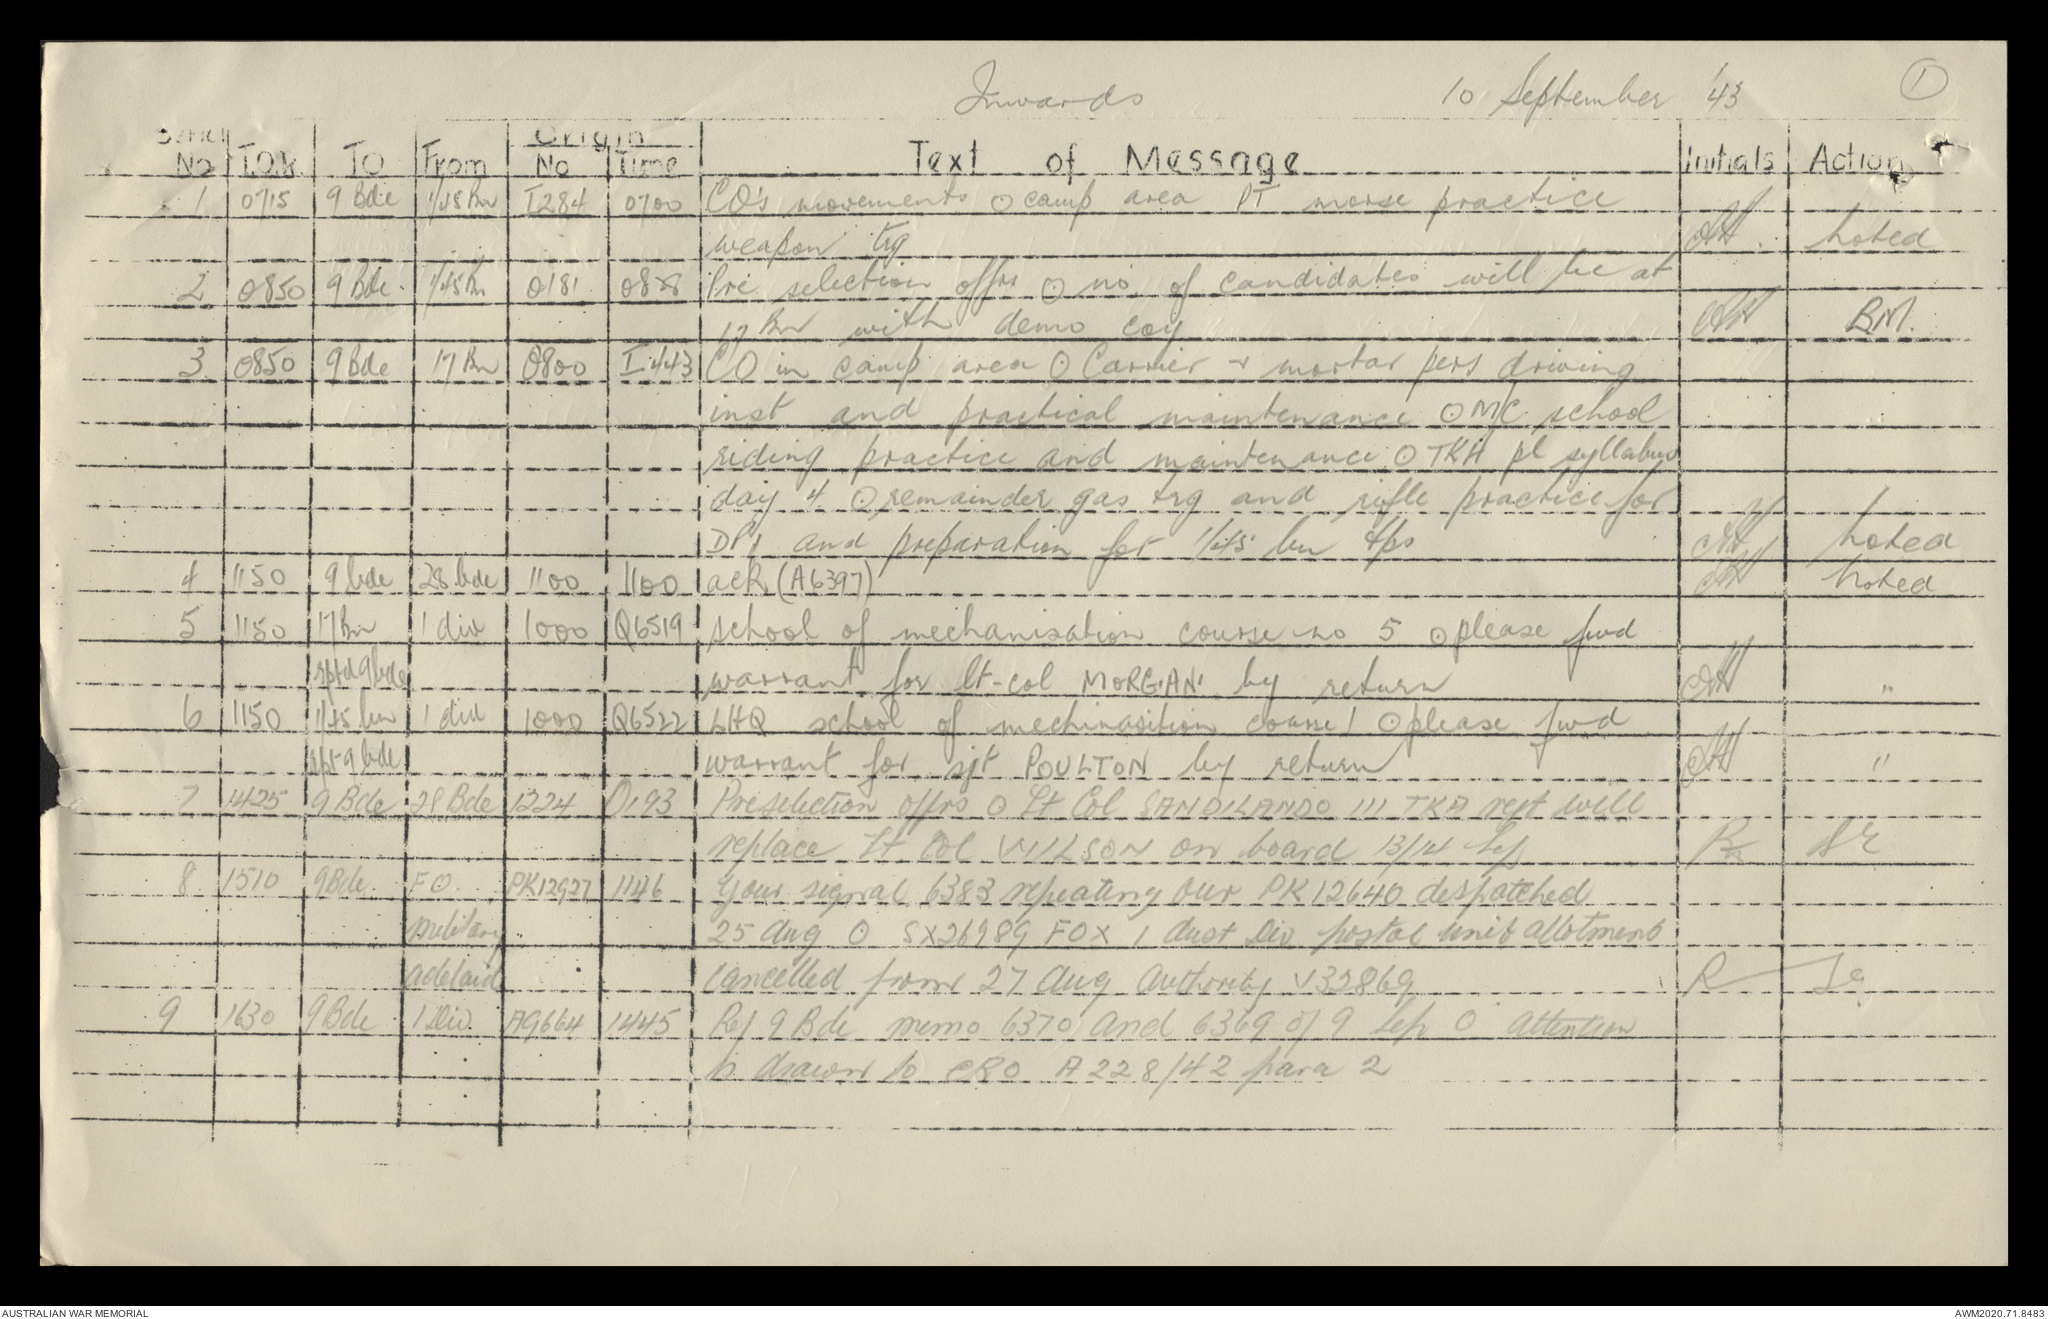 Inwards 10 September '43 1
Serial Origin
No T.O.R. TO From No Time Text of Message Initials Action
1 0715 9 Bde 1/45 Bn I284 0700 CO's movements ⊙ camp area PT morse practice
weapon trg noted
2 0850 9 Bde 1/45 Bn O181 0828 Pre selection offrs ⊙ no. of candidates will be at
17 Bn with demo coy BM.
3 0850 9 Bde 17 Bn 0800 I443 CO in camp area ⊙ Carrier + mortar pers driving
inst and practical maintenance ⊙ M/C school
riding practice and maintenance ⊙ TKA pl syllabus
day 4. ⊙ remainder gas trg and rifle practice for
DP1 and preparation for 1/45 bn tps noted
4 1150 9 bde 28 bde 1100 1100 ack (A6397) noted
5 1150 17 Bn 1 div 1000 Q6519 school of mechanisation course no 5 ⊙ please fwd
rptd 9 bde warrant for lt-col MORGAN by return "
6 1150 1/45 bn 1 div 1000 Q6522 LHQ school of mechinasition course 1 ⊙ please fwd
rpt 9 bde warrant for sjt POULTON by return "
7 1425 9 Bde 28 Bde 1224 O193 Preselection offrs ⊙ Lt Col SANDILANDO 111 TKA regt will
replace Lt Col WILSON on board 13/14 Sep
8 1510 9 Bde F.O. PK12927 1146 Your signal 6383 repeating our PK12640 despatched
military 25 Aug ⊙ SX26989 FOX 1 Aust Div postal unit allotment
adelaide cancelled from 27 Aug Authority V32869
9 1630 9 Bde 1 Div AG664 1445 Ref 9 Bde memo 6370 and 6369 of 9 Sep ⊙ attention
is drawn to GRO A228/42 para 2
AUSTRALIAN WAR MEMORIAL AWM2020.71.8483